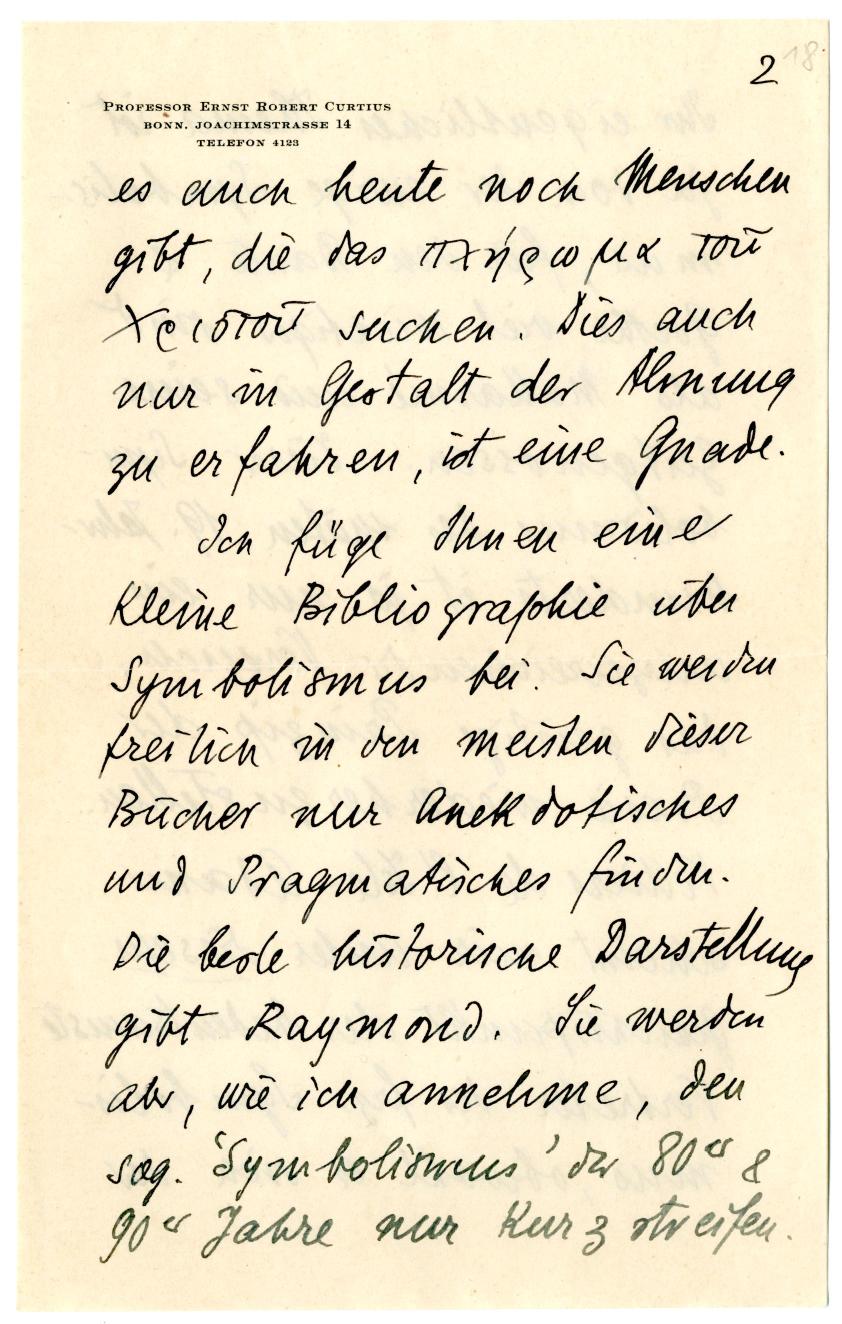 2 18
PROFESSOR ERNST ROBERT CURTIUS
BONN. JOACHIMSTRASSE 14
TELEFON 4123
es auch heute noch Menschen
gibt, die das πλήρωμα τοῦ
Χριστοῦ suchen. Dies auch
nur in Gestalt der Ahnung
zu erfahren, ist eine Gnade.
Ich füge Ihnen eine
kleine Bibliographie über
Symbolismus bei. Sie werden
freilich in den meisten dieser
Bücher nur Anekdotisches
und Pragmatisches finden.
Die beste historische Darstellung
gibt Raymond. Sie werden
aber, wie ich annehme, den
sog. 'Symbolismus' der 80er &
90er Jahre nur kurz streifen.